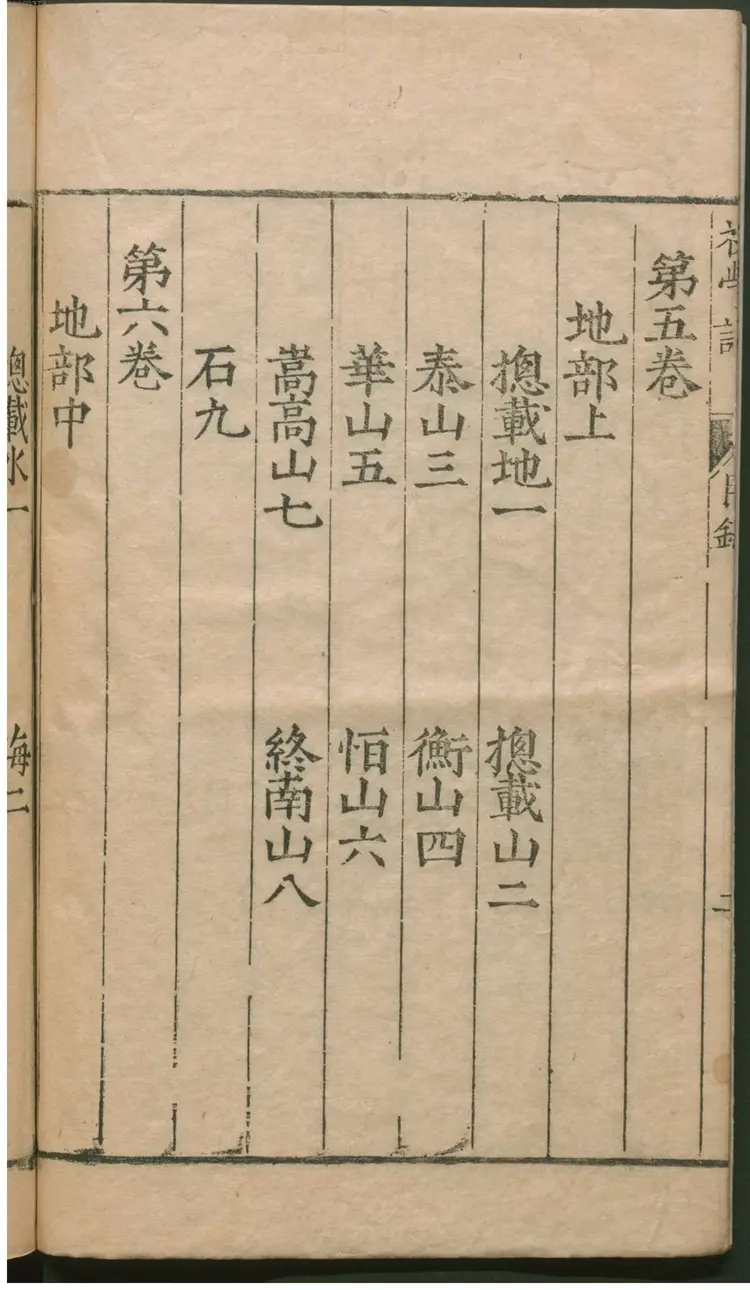 初學記 目錄 二
第五卷
地部上
摠載地一 摠載山二
泰山三 衡山四
華山五 恒山六
嵩高山七 終南山八
石九
第六卷
地部中
摠載水一 海二